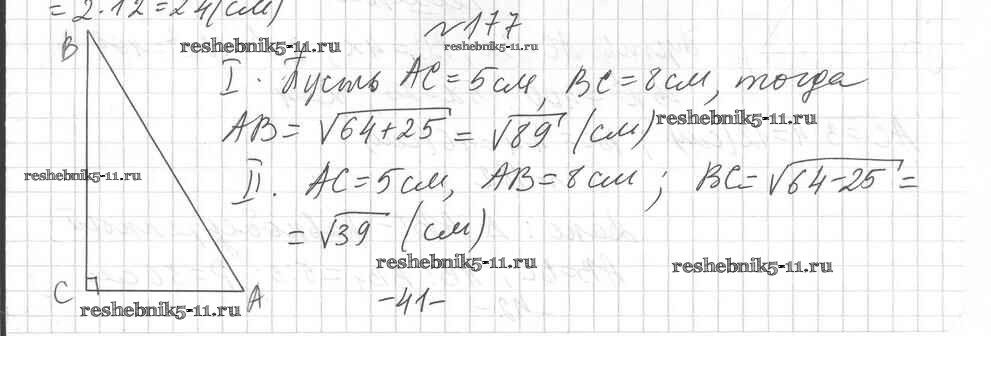 = 2·12 = 24 (см)
№177
B
reshebnik5-11.ru
reshebnik5-11.ru
I. Пусть AC = 5 см, BC = 8 см, тогда
AB = √64+25 = √89 (см)
reshebnik5-11.ru
reshebnik5-11.ru
II. AC = 5 см, AB = 8 см; BC = √64-25 =
= √39 (см)
reshebnik5-11.ru
reshebnik5-11.ru
C
A
reshebnik5-11.ru
-41-